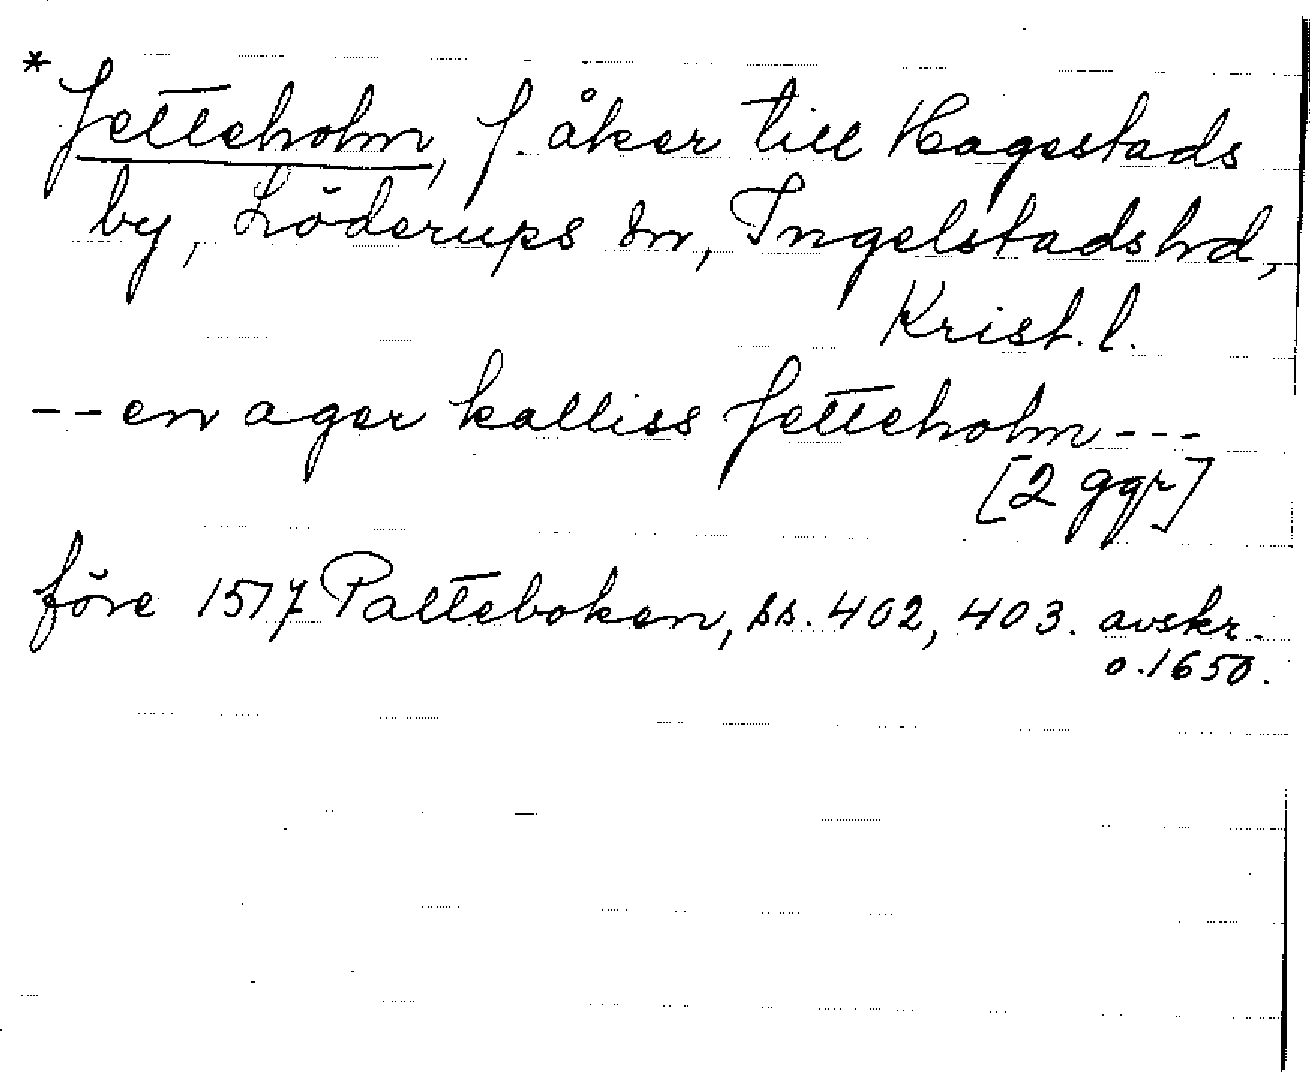 * Jetteholm, f. åker till Hagestads
by, Löderups sn, Ingelstads hd,
Krist. l.
-- en ager kalliss Jetteholm ---
[2 ggr]
före 1517 Palteboken, ss. 402, 403. avskr.
o. 1650.